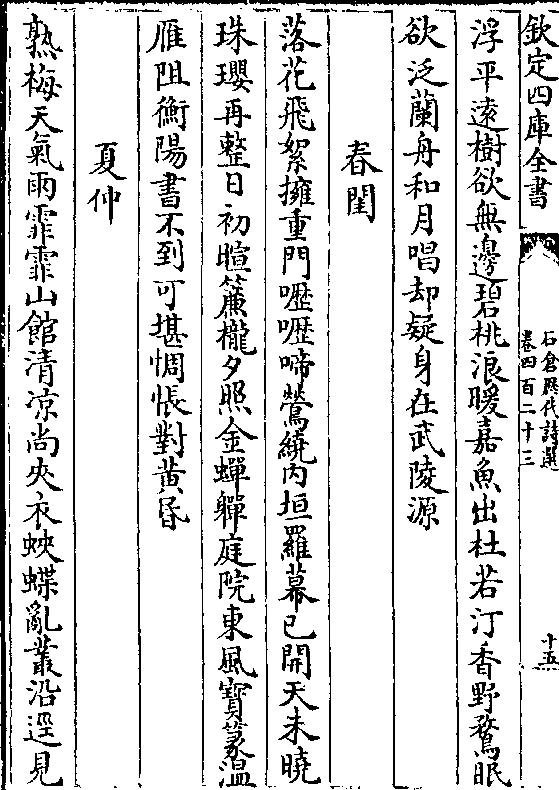 欽定四庫全書
石倉歷代詩選
卷四百二十三
十五
浮平遠樹欲無邊碧桃浪暖嘉魚出杜若汀香野鶩眠
欲泛蘭舟和月唱却疑身在武陵源
春閨
落花飛絮擁重門嚦嚦啼鶯繞内垣羅幕已開天未曉
珠瓔再整日初暄簾櫳夕照金蟬軃庭院東風寶篆温
雁阻衡陽書不到可堪惆悵對黄昏
夏仲
熟梅天氣雨霏霏山館清凉尚夾衣蛺蝶亂叢沿逕見